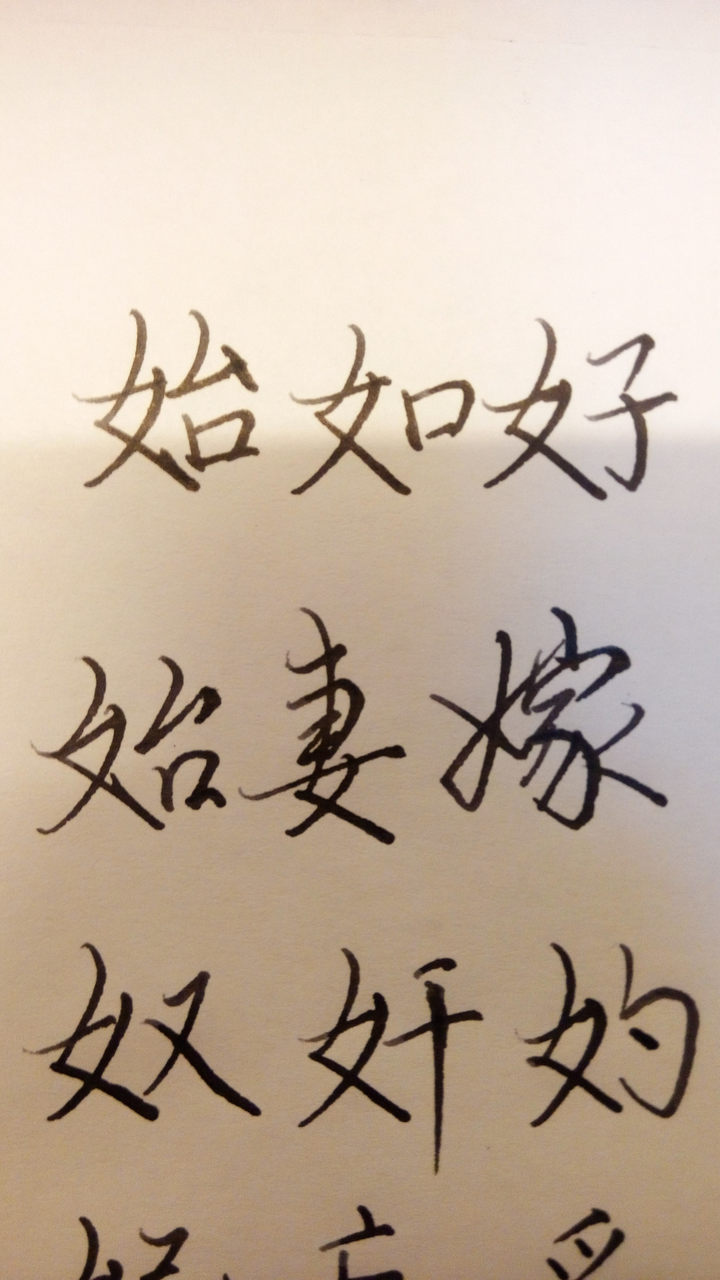 始如好
始妻嫁
奴奸妁